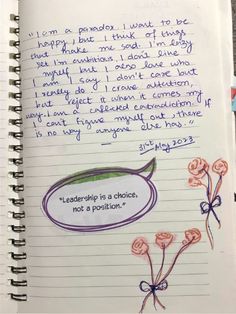 "I am a paradox. I want to be
happy, but I think of things
that make me sad. I'm lazy
yet I'm ambitious, I don't like
myself but I also love who
I am. I say I don't care but
I really do. I crave attention,
but reject it when it comes my
way. I am a conflicted contradiction. If
I can't figure myself out, there
is no way anyone else has."
31st May 2023
"Leadership is a choice,
not a position."